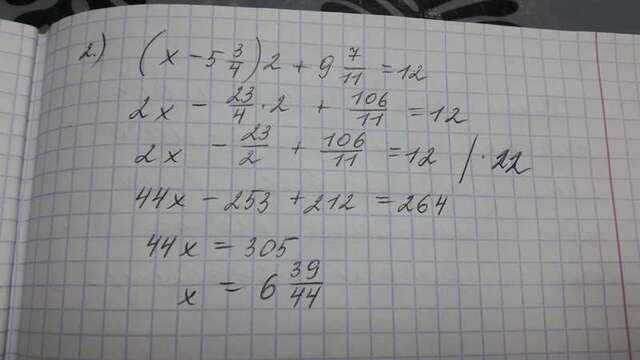 2) (x - 5 3/4) 2 + 9 7/11 = 12
2x - 23/4 · 2 + 106/11 = 12
2x - 23/2 + 106/11 = 12 / · 22
44x - 253 + 212 = 264
44x = 305
x = 6 39/44